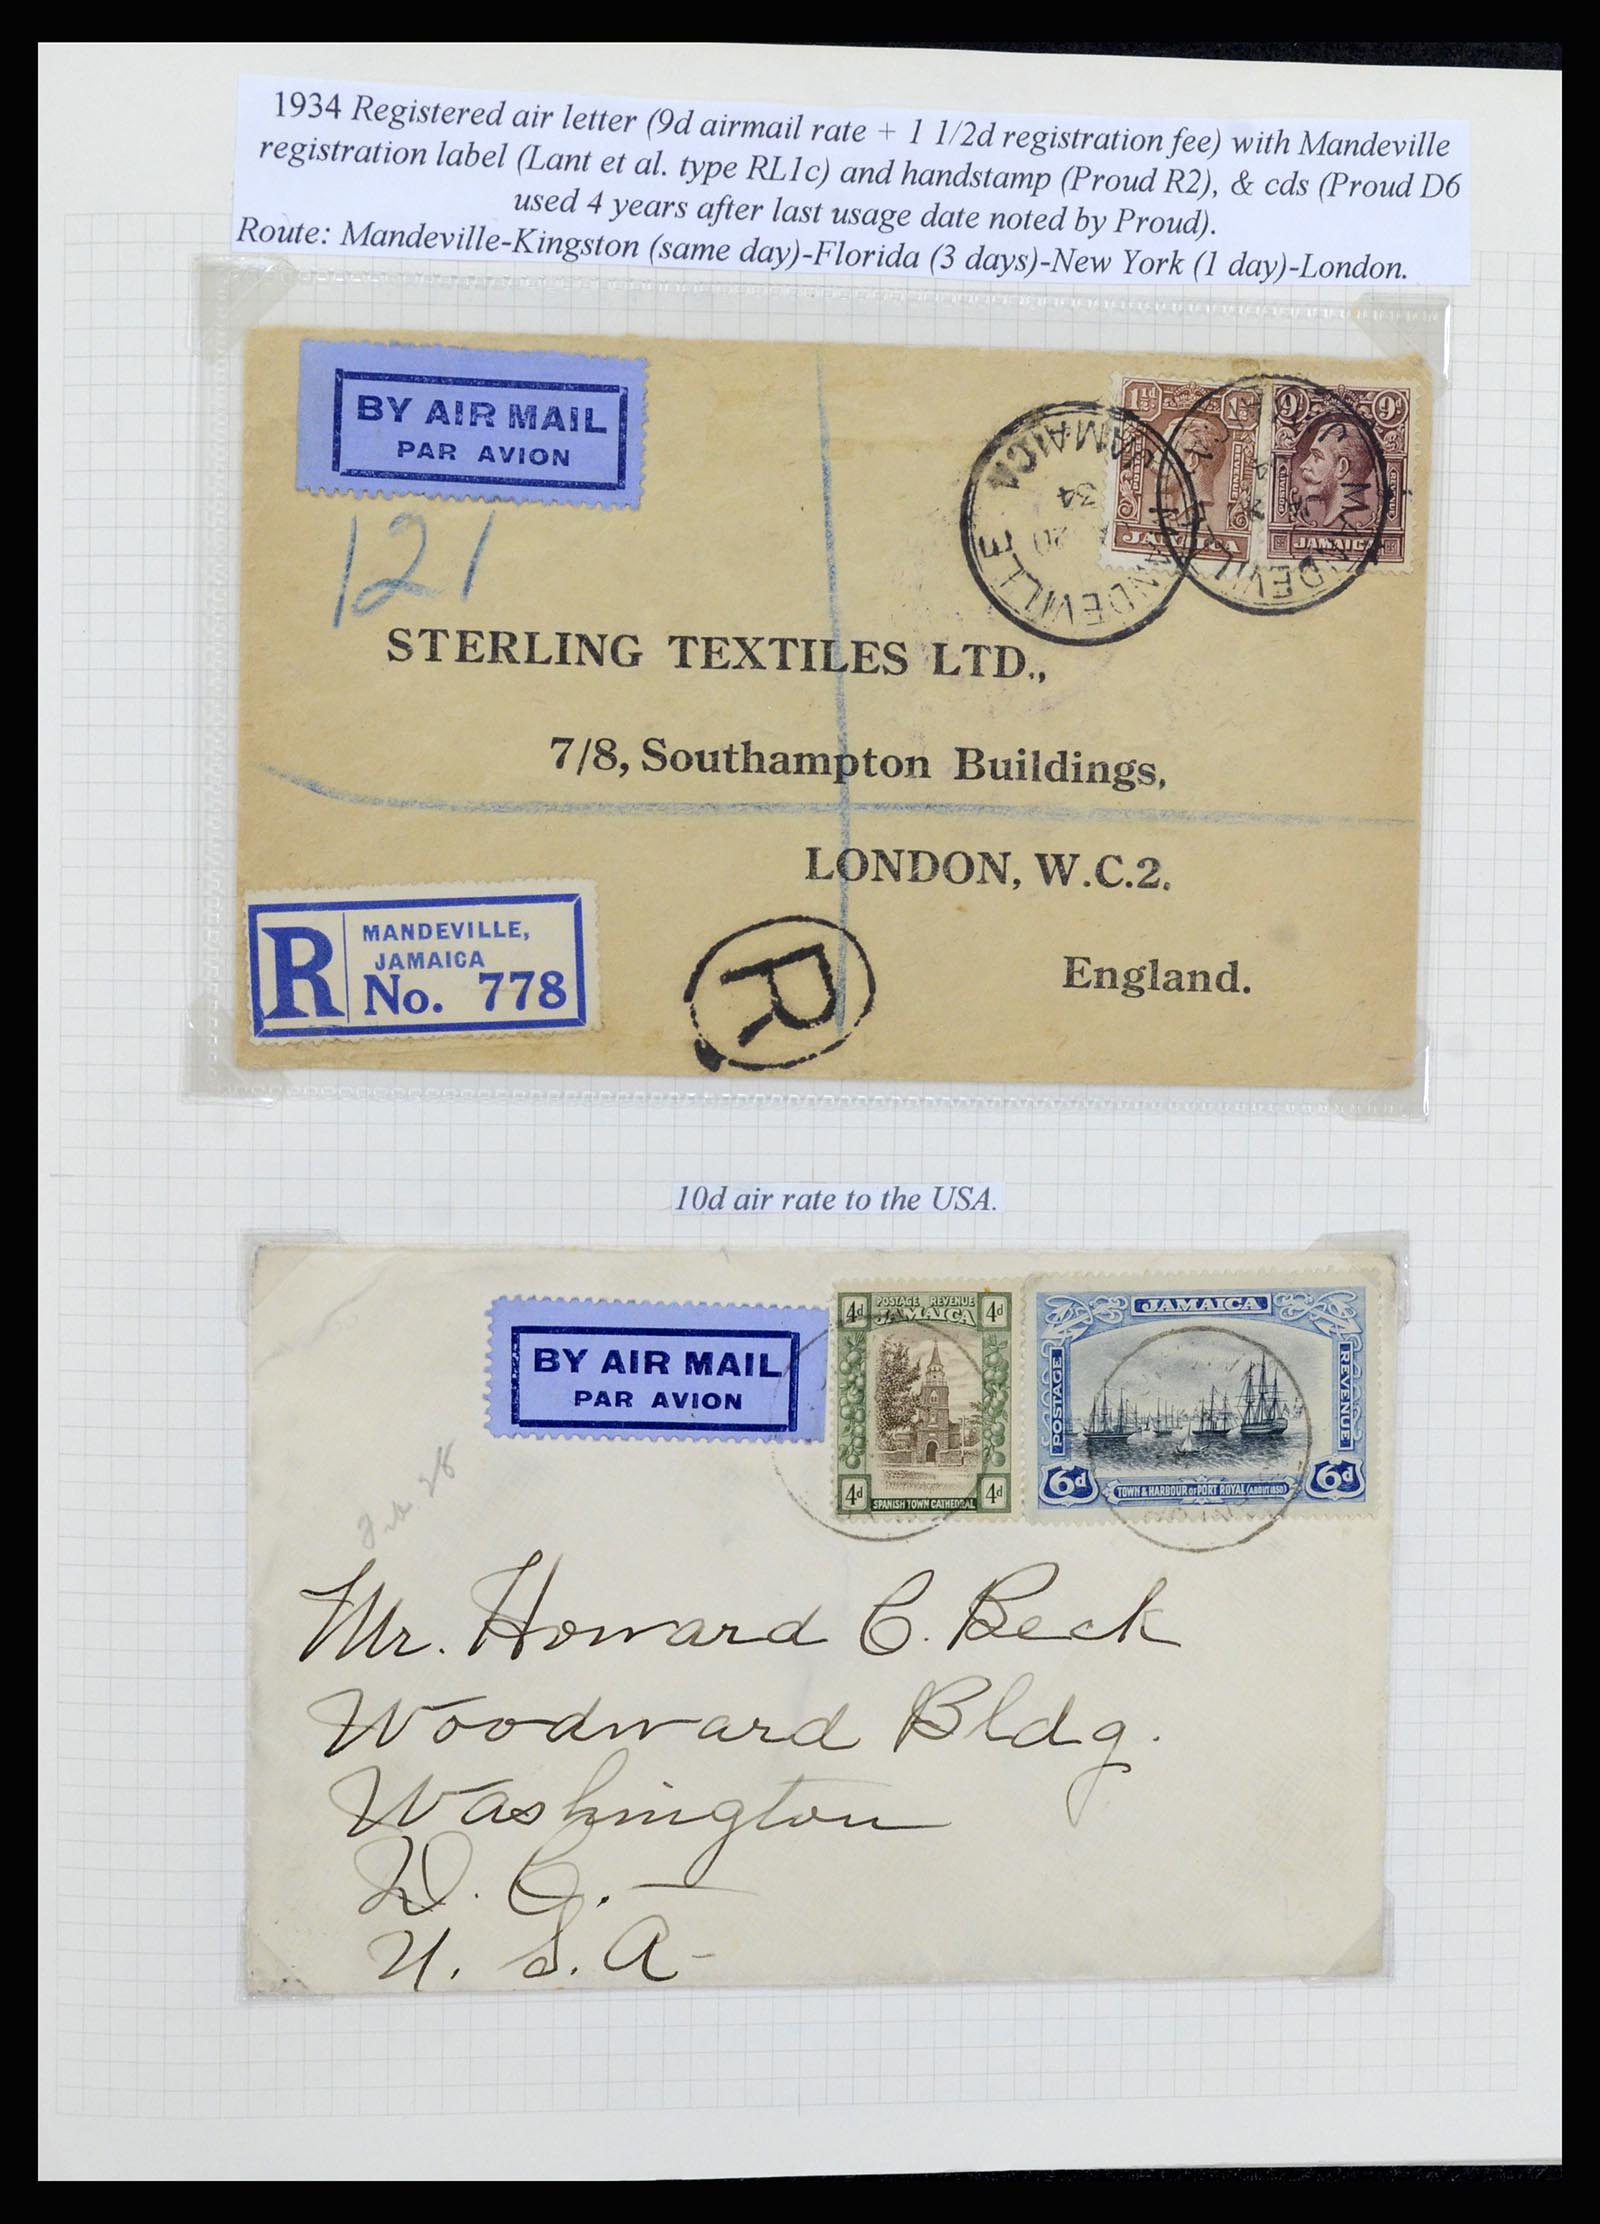 1934 Registered air letter (9d airmail rate + 1 1/2d registration fee) with Mandeville
registration label (Lant et al. type RL1c) and handstamp (Proud R2), & cds (Proud D6
used 4 years after last usage date noted by Proud).
Route: Mandeville-Kingston (same day)-Florida (3 days)-New York (1 day)-London.
BY AIR MAIL
PAR AVION
1½d
9d 9d
JAMAICA
JAMAICA
MANDEVILLE JAMAICA
20
34
MANDEVILLE
121
STERLING TEXTILES LTD.,
7/8, Southampton Buildings,
LONDON, W.C.2.
England.
R
MANDEVILLE,
JAMAICA
No. 778
R
10d air rate to the USA.
BY AIR MAIL
PAR AVION
4d POSTAGE REVENUE 4d
JAMAICA
4d SPANISH TOWN CATHEDRAL 4d
JAMAICA
POSTAGE
REVENUE
6d TOWN & HARBOUR OF PORT ROYAL (ABOUT 1850) 6d
28
Mr. Howard C. Beck
Woodward Bldg.
Washington
D. C. —
U. S. A -